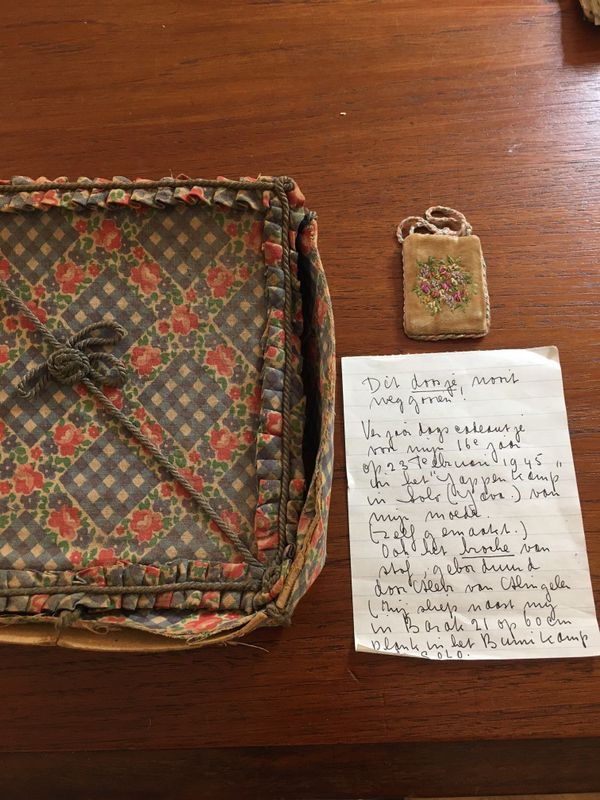 Dit doosje, nooit
weggooien!
Verjaardags cadeautje
voor mijn 16e jaar
op 23 Februari 1945
in het "Jappenkamp"
in Solo (Java) van
mijn moeder.
(zelf gemaakt.)
Ook het broche van
stof, geborduurd
door van
(Zij sliep naast mij
in Barak 21 op 60 cm
plank in het Bumikamp
Solo.